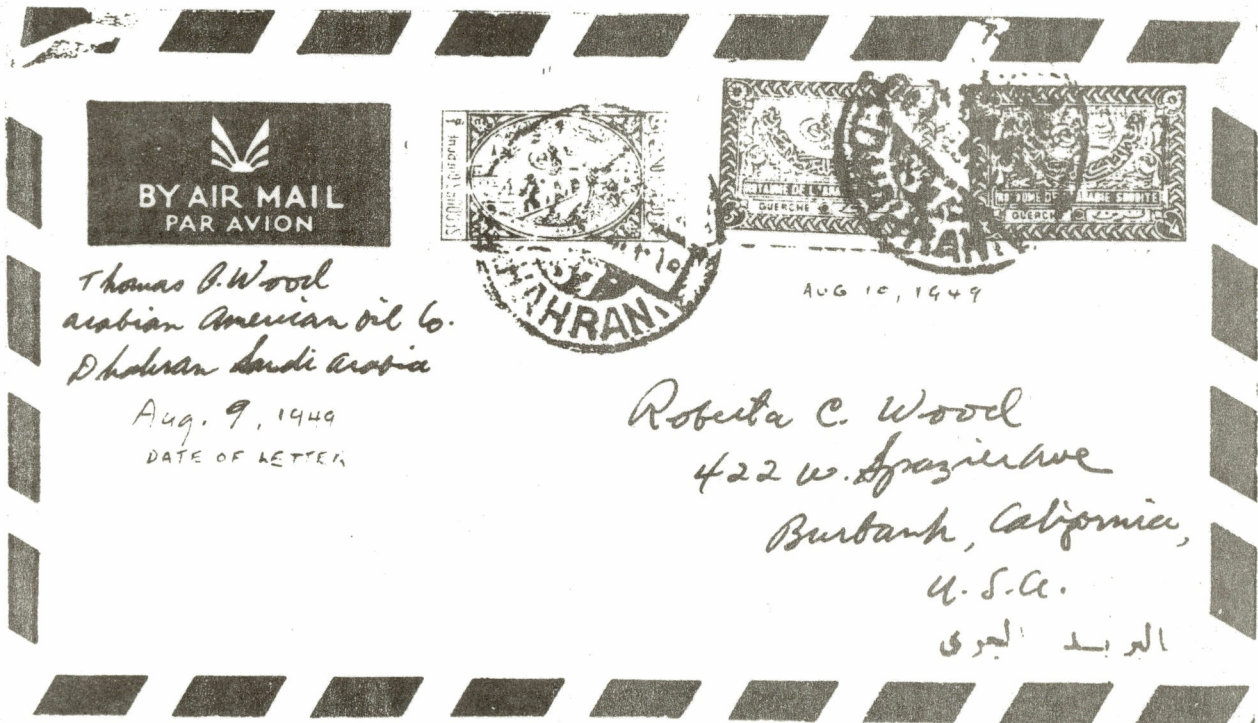 BY AIR MAIL
PAR AVION
Thomas P. Wood
Arabian American Oil Co.
Dhahran Saudi Arabia
Aug. 9, 1949
DATE OF LETTER
DHAHRAN
ROYAUME DE L'ARABIE SAOUDITE
GUERCHE
GUERCHE
DHAHRAN
AUG 10, 1949
Roberta C. Wood
422 W. Spazier Ave
Burbank, California,
U.S.A.
البريد الجوى